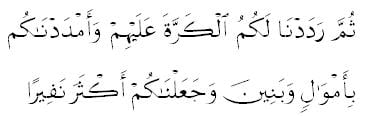 ثُمَّ رَدَدْنَا لَكُمُ ٱلْكَرَّةَ عَلَيْهِمْ وَأَمْدَدْنَٰكُم
بِأَمْوَٰلٍ وَبَنِينَ وَجَعَلْنَٰكُمْ أَكْثَرَ نَفِيرًا